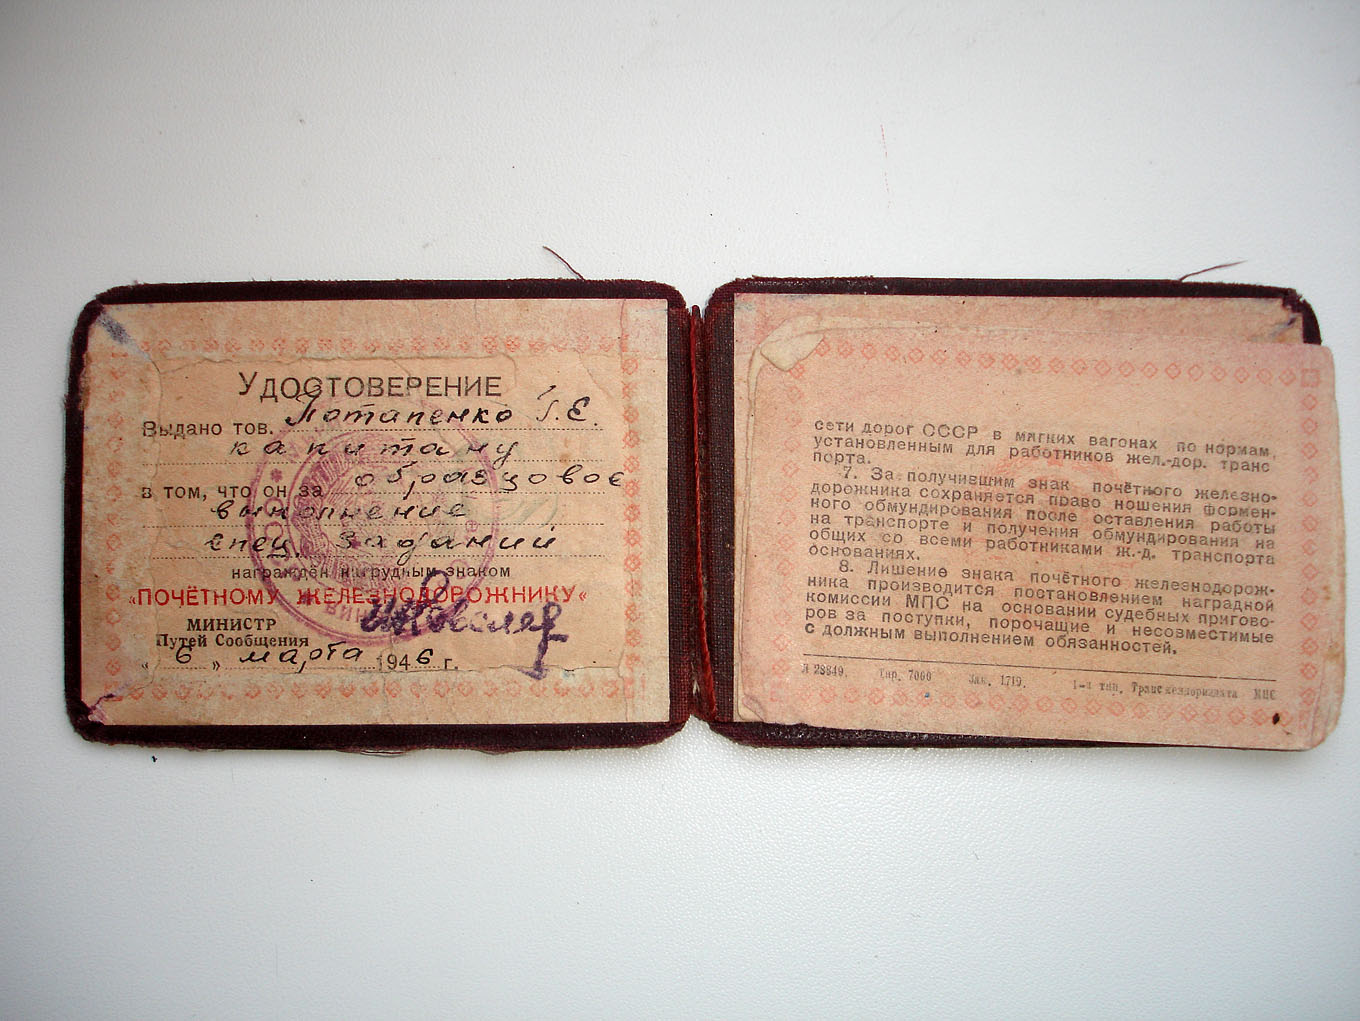 УДОСТОВЕРЕНИЕ
Выдано тов. Потапенко Г.Е.
капитану
в том, что он за образцовое
выполнение
спец. заданий
награждён нагрудным знаком
«ПОЧЁТНОМУ ЖЕЛЕЗНОДОРОЖНИКУ«
МИНИСТР
Путей Сообщения
„ 6 „ марта 1946 г.
сети дорог СССР в мягких вагонах по нормам,
установленным для работников жел.-дор. транс
порта.
7. За получившим знак почётного железно-
дорожника сохраняется право ношения формен-
ного обмундирования после оставления работы
на транспорте и получения обмундирования на
общих со всеми работниками ж.-д. транспорта
основаниях.
8. Лишение знака почётного железнодорож-
ника производится постановлением наградной
комиссии МПС на основании судебных пригово-
ров за поступки, порочащие и несовместимые
с должным выполнением обязанностей.
Л 28849. Тир. 7000 Зак. 1719. 1-я тип. Трансжелдориздата МПС